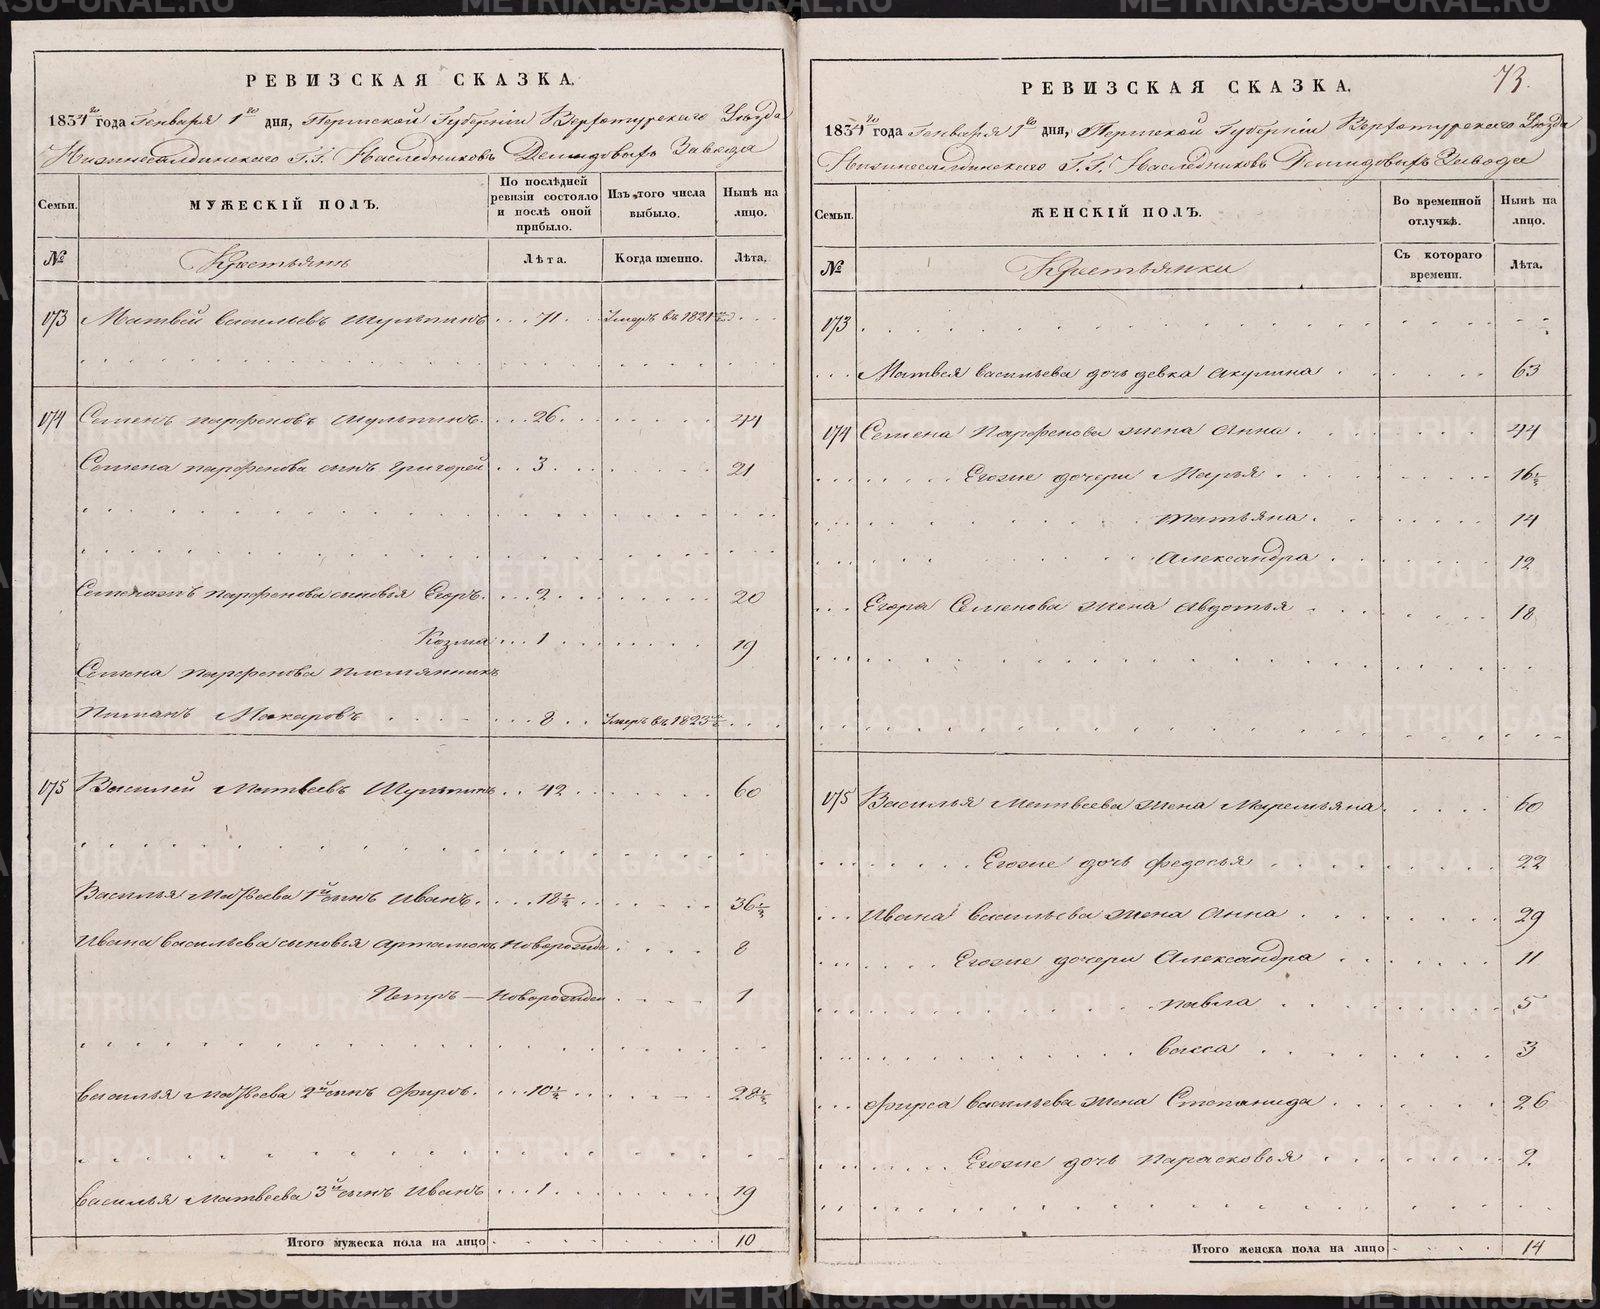 РЕВИЗСКАЯ СКАЗКА.
1834го года Генваря 1го дня, Пермской Губернiи Верхотурскаго Уѣзда
Нижнесалдинскаго Г.Г. Наслѣдниковъ Демидовыхъ Завода
Семьи.
МУЖЕСКIЙ ПОЛЪ.
По послѣдней ревизiи состояло и послѣ оной прибыло.
Изъ того числа выбыло.
Нынѣ на лицо.
№
Крестьянъ
Лѣта.
Когда именно.
Лѣта.
173 Матвей васильевъ Шульпинъ 71 Умеръ въ 1821
174 Семенъ парфеновъ Шульпинъ 26 44
Семена парфенова сынъ Григорей 3 21
парфенова сыновья Егоръ 2 20
Козма 1 19
Семена парфенова племянникъ
Пиманъ Макаровъ 8 Умеръ въ 1823
175 Василей Матвеевъ Шульпинъ 42 60
Василья Матвеева 1й сынъ Иванъ 18½ 36½
Ивана васильева сыновья Артамонъ Новорожде 8
Петръ — Новорожден 1
василья Матвеева 2й сынъ Фирсъ 10½ 28½
василья Матвеева 3й сынъ Иванъ 1 19
Итого мужеска пола на лицо 10
73.
РЕВИЗСКАЯ СКАЗКА.
1834го года Генваря 1го дня, Пермской Губернiи Верхотурскаго Уѣзда
Нижнесалдинскаго Г.Г. Наслѣдниковъ Демидовыхъ Завода
Семьи.
ЖЕНСКIЙ ПОЛЪ.
Во временной отлучкѣ.
Нынѣ на лицо.
№
Крестьянки
Съ котораго времени.
Лѣта.
173
Матвея васильева дочь девка Акулина 63
174 Семена Парфенова жена Анна 44
Егоже дочери Марья 16½
татьяна 14
Александра 12
Егора Семенова жена Авдотья 18
175 Василья Матвеева жена Маремьяна 60
Егоже дочь федосья 22
Ивана васильева жена Анна 29
Егоже дочери Александра 11
павла 5
васса 3
Фирса васильева жена Степанида 26
Егоже дочь парасковья 2
Итого женска пола на лицо 14
METRIKI.GASO-URAL.RU